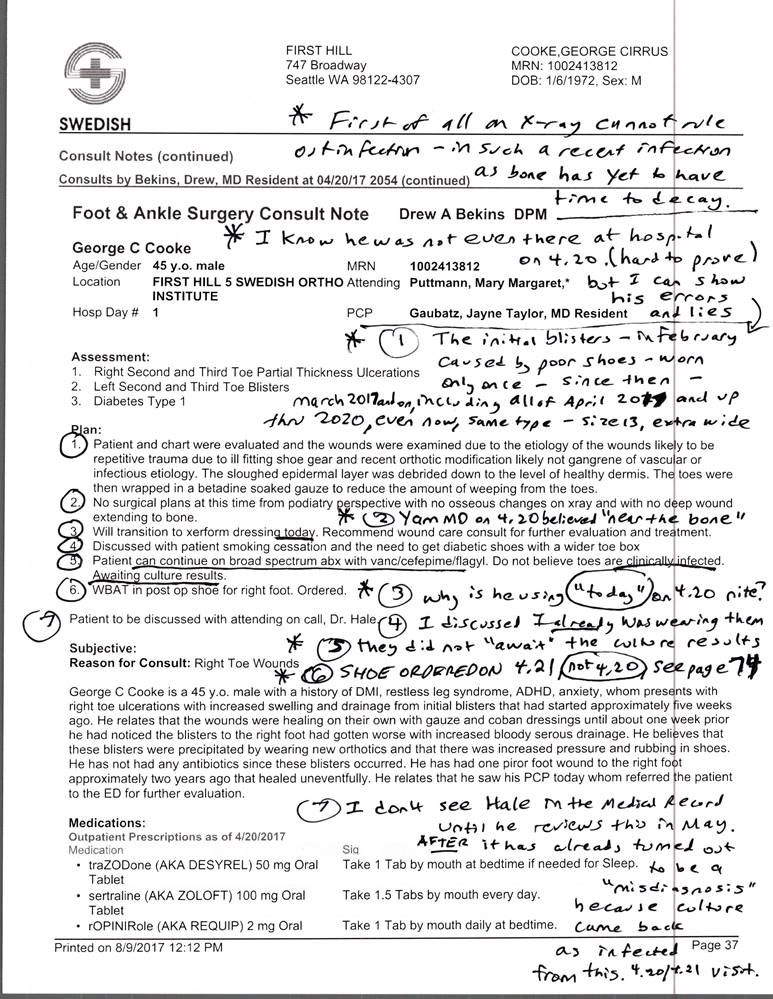 FIRST HILL
747 Broadway
Seattle WA 98122-4307
COOKE,GEORGE CIRRUS
MRN: 1002413812
DOB: 1/6/1972, Sex: M
SWEDISH
* First of all an X-ray cannot rule
out infection - in such a recent infection
as bone has yet to have
time to decay.
Consult Notes (continued)
Consults by Bekins, Drew, MD Resident at 04/20/17 2054 (continued)
Foot & Ankle Surgery Consult Note Drew A Bekins DPM
* I know he was not even there at hospital
on 4.20. (hard to prove)
but I can show
his errors
and lies
George C Cooke
Age/Gender 45 y.o. male MRN 1002413812
Location FIRST HILL 5 SWEDISH ORTHO INSTITUTE Attending Puttmann, Mary Margaret,*
Hosp Day # 1 PCP Gaubatz, Jayne Taylor, MD Resident
* (1) The initial blisters - in February
caused by poor shoes - worn
only once - since then -
march 2017 and on, including all of April 2017 and up
thru 2020, even now, same type - size 13, extra wide
Assessment:
1. Right Second and Third Toe Partial Thickness Ulcerations
2. Left Second and Third Toe Blisters
3. Diabetes Type 1
Plan:
1. Patient and chart were evaluated and the wounds were examined due to the etiology of the wounds likely to be
repetitive trauma due to ill fitting shoe gear and recent orthotic modification likely not gangrene of vascular or
infectious etiology. The sloughed epidermal layer was debrided down to the level of healthy dermis. The toes were
then wrapped in a betadine soaked gauze to reduce the amount of weeping from the toes.
2. No surgical plans at this time from podiatry perspective with no osseous changes on xray and with no deep wound
extending to bone.
* (2) Yam MD on 4.20 believed "near the bone"
3. Will transition to xerform dressing today. Recommend wound care consult for further evaluation and treatment.
4. Discussed with patient smoking cessation and the need to get diabetic shoes with a wider toe box
5. Patient can continue on broad spectrum abx with vanc/cefepime/flagyl. Do not believe toes are clinically infected.
Awaiting culture results.
6. WBAT in post op shoe for right foot. Ordered.
* (3) why is he using "today" on 4.20 nite?
7 Patient to be discussed with attending on call, Dr. Hale
(4) I discussed I already was wearing them
* (5) they did not "await" the culture results
* (6) SHOE ORDERED ON 4.21 (not 4.20) see page 74
Subjective:
Reason for Consult: Right Toe Wounds
George C Cooke is a 45 y.o. male with a history of DMI, restless leg syndrome, ADHD, anxiety, whom presents with
right toe ulcerations with increased swelling and drainage from initial blisters that had started approximately five weeks
ago. He relates that the wounds were healing on their own with gauze and coban dressings until about one week prior
he had noticed the blisters to the right foot had gotten worse with increased bloody serous drainage. He believes that
these blisters were precipitated by wearing new orthotics and that there was increased pressure and rubbing in shoes.
He has not had any antibiotics since these blisters occurred. He has had one piror foot wound to the right foot
approximately two years ago that healed uneventfully. He relates that he saw his PCP today whom referred the patient
to the ED for further evaluation.
(7) I don't see Hale in the Medical Record
until he reviews this in May.
AFTER it has already turned out
to be a
"misdiagnosis"
because culture
came back
as infected
from this. 4.20/4.21 visit.
Medications:
Outpatient Prescriptions as of 4/20/2017
Medication Sig
• traZODone (AKA DESYREL) 50 mg Oral Tablet Take 1 Tab by mouth at bedtime if needed for Sleep.
• sertraline (AKA ZOLOFT) 100 mg Oral Tablet Take 1.5 Tabs by mouth every day.
• rOPINIRole (AKA REQUIP) 2 mg Oral Take 1 Tab by mouth daily at bedtime.
Printed on 8/9/2017 12:12 PM
Page 37